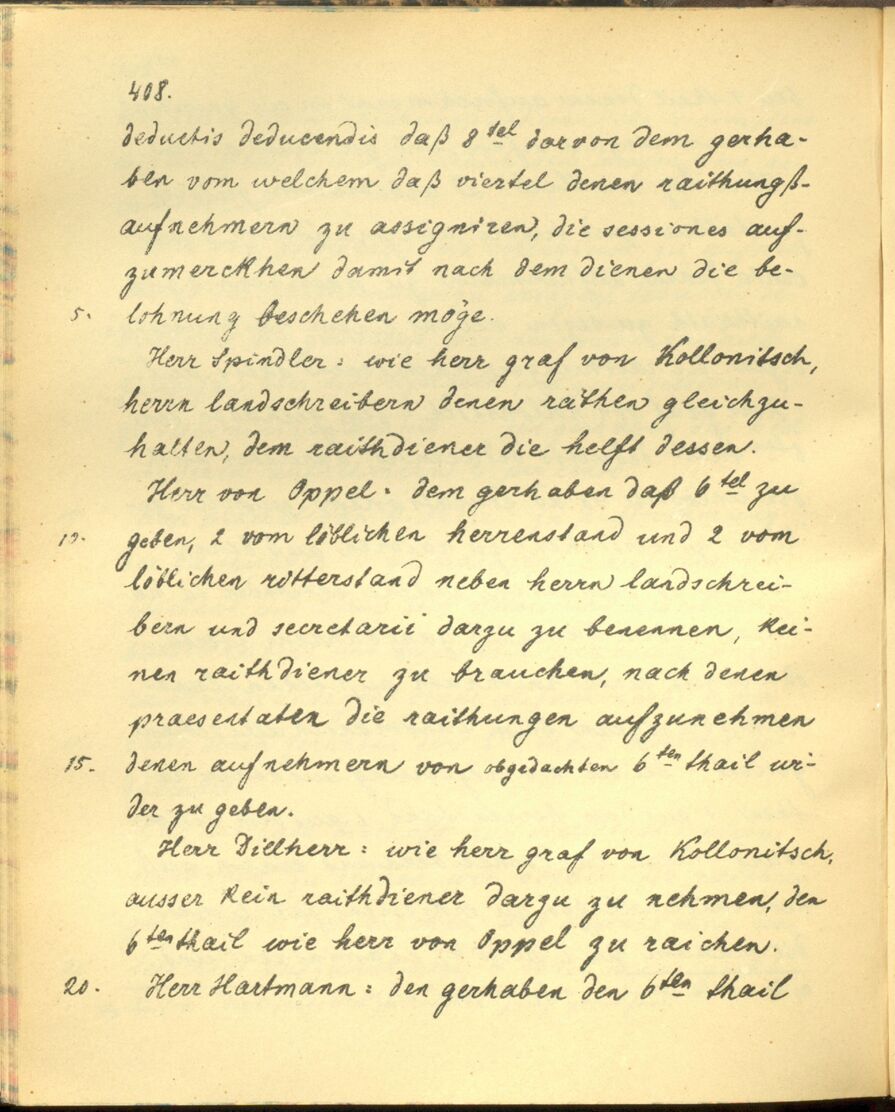 408.
deductis deducendis daß 8 tel darvon dem gerha-
ben vom welchem daß viertel denen raithungß-
aufnehmern zu assigniren, die sessiones auf-
zumerckhen damit nach dem dienen die be-
5. lohnung beschehen möge.
Herr Spindler: wie herr graf von Kollonitsch,
herrn landschreibern denen räthen gleichzu-
halten, dem raithdiener die helft dessen.
Herr von Oppel: dem gerhaben daß 6 tel zu
10. geben, 2 vom löblichen herrenstand und 2 vom
löblichen ritterstand neben herrn landschrei-
bern und secretarii darzu zu benennen, kei-
nen raithdiener zu brauchen, nach denen
praesentaten die raithungen aufzunehmen
15. denen aufnehmern von obgedachten 6 ten thail wi-
der zu geben.
Herr Dillherr: wie herr graf von Kollonitsch,
ausser kein raithdiener darzu zu nehmen, den
6 ten thail wie herr von Oppel zu raichen.
20. Herr Hartmann: den gerhaben den 6 ten thail